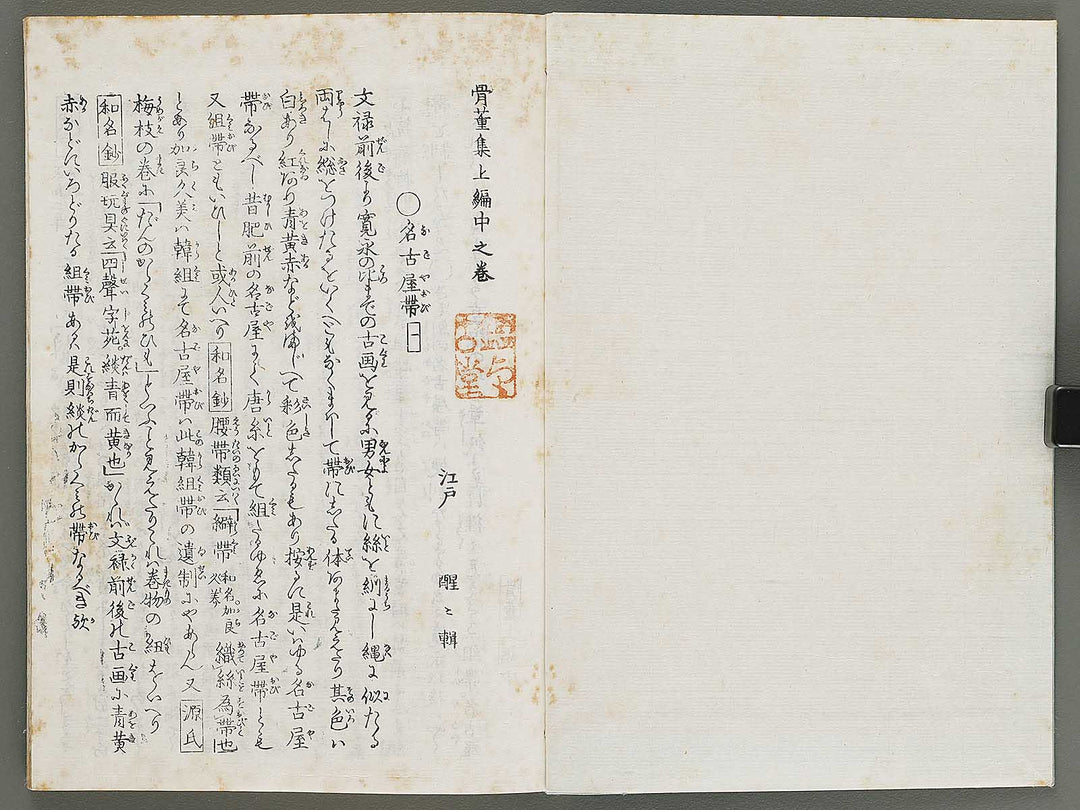 骨董集上編中之巻
江戸 醒〻輯
○名古屋帯 一
文禄前後より寛永の比までの古画を見るに男女ともに絲を糾にし縄に似たる
両はしに総をつけたるをいくへともなくまはして帯にしたる体あまた見えたり其色は
白あり紅あり青黄赤など打まじへて彩色したるもあり按るに是いはゆる名古屋
帯なるべし昔肥前の名古屋にて唐糸をもて組たるゆゑに名古屋帯とも
又組帯ともいひしと或人いへり和名鈔腰帯類云「䌟帯和名加良久美織絲為帯也」
とあり加良久美は韓組にて名古屋帯は此韓組帯の遺制にやあらん又源氏
梅枝の巻に「だんのからくみのひも」といふこと見えたりこれは巻物の紐をいへり
和名鈔服玩具云「四聲字苑緂青而黄也」かゝれば文禄前後の古画に青黄
赤などにいろどりたる組帯あるは是則緂のからくみの帯なるべき歟